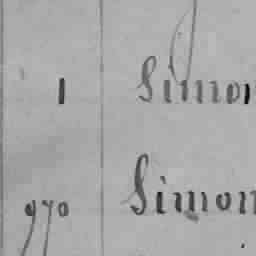 1 Simon
970 Simon